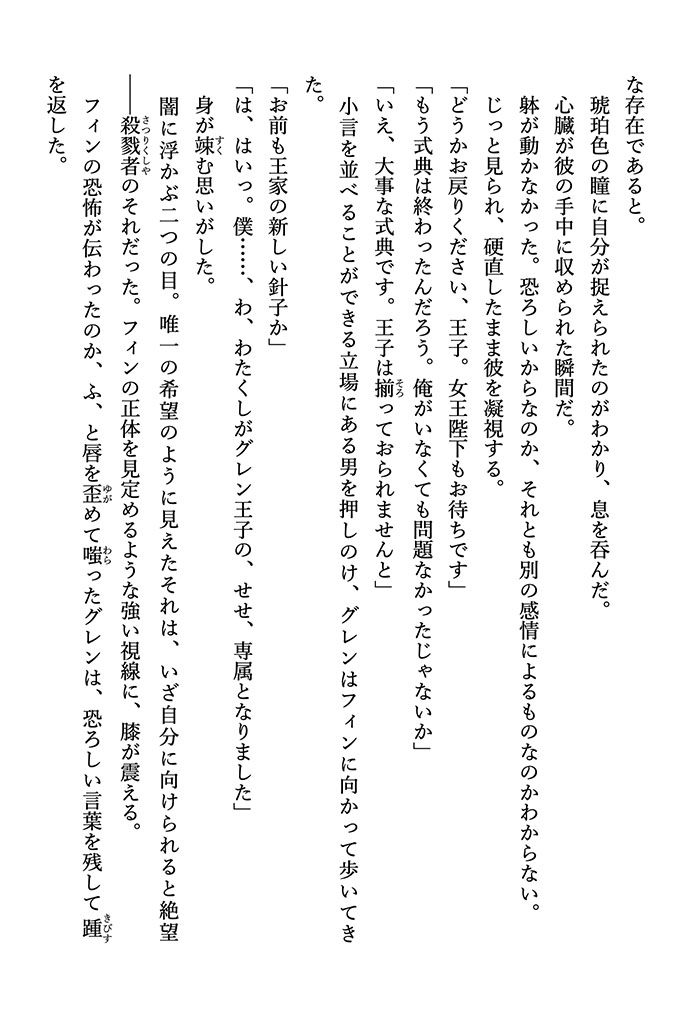 な存在であると。
琥珀色の瞳に自分が捉えられたのがわかり、息を呑んだ。
心臓が彼の手中に収められた瞬間だ。
躰が動かなかった。恐ろしいからなのか、それとも別の感情によるものなのかわからない。
じっと見られ、硬直したまま彼を凝視する。
「どうかお戻りください、王子。女王陛下もお待ちです」
「もう式典は終わったんだろう。俺がいなくても問題なかったじゃないか」
「いえ、大事な式典です。王子は揃そろっておられませんと」
小言を並べることができる立場にある男を押しのけ、グレンはフィンに向かって歩いてき
た。
「お前も王家の新しい針子か」
「は、はいっ。僕……、わ、わたくしがグレン王子の、せせ、専属となりました」
身が竦すくむ思いがした。
闇に浮かぶ二つの目。唯一の希望のように見えたそれは、いざ自分に向けられると絶望
――殺戮者さつりくしゃのそれだった。フィンの正体を見定めるような強い視線に、膝が震える。
フィンの恐怖が伝わったのか、ふ、と唇を歪ゆがめて嗤わらったグレンは、恐ろしい言葉を残して踵きびす
を返した。